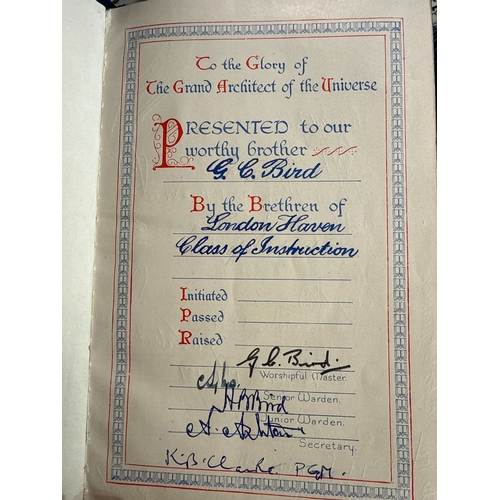 To the Glory of
The Grand Architect of the Universe
PRESENTED to our
worthy brother
G. C. Bird
By the Brethren of
London Haven
Class of Instruction
Initiated
Passed
Raised
G C Bird.
Worshipful Master.
Senior Warden.
Junior Warden.
Secretary.